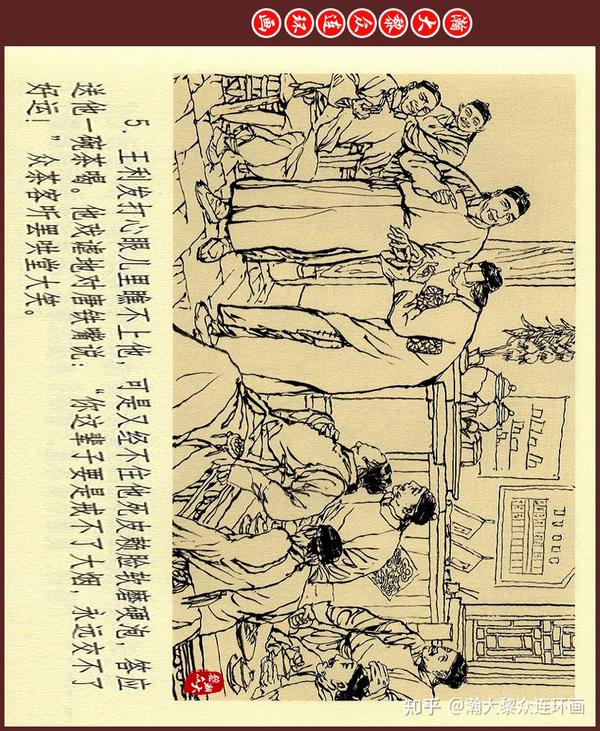 瀚大黎众连环画
5. 王利发打心眼儿里瞧不上他，可是又经不住他死皮赖脸软磨硬泡，答应
送他一碗茶喝。他戏谑地对唐铁嘴说：“你这辈子要是戒不了大烟，永远交不了
好运！”众茶客听罢哄堂大笑。
知乎 @瀚大黎众连环画